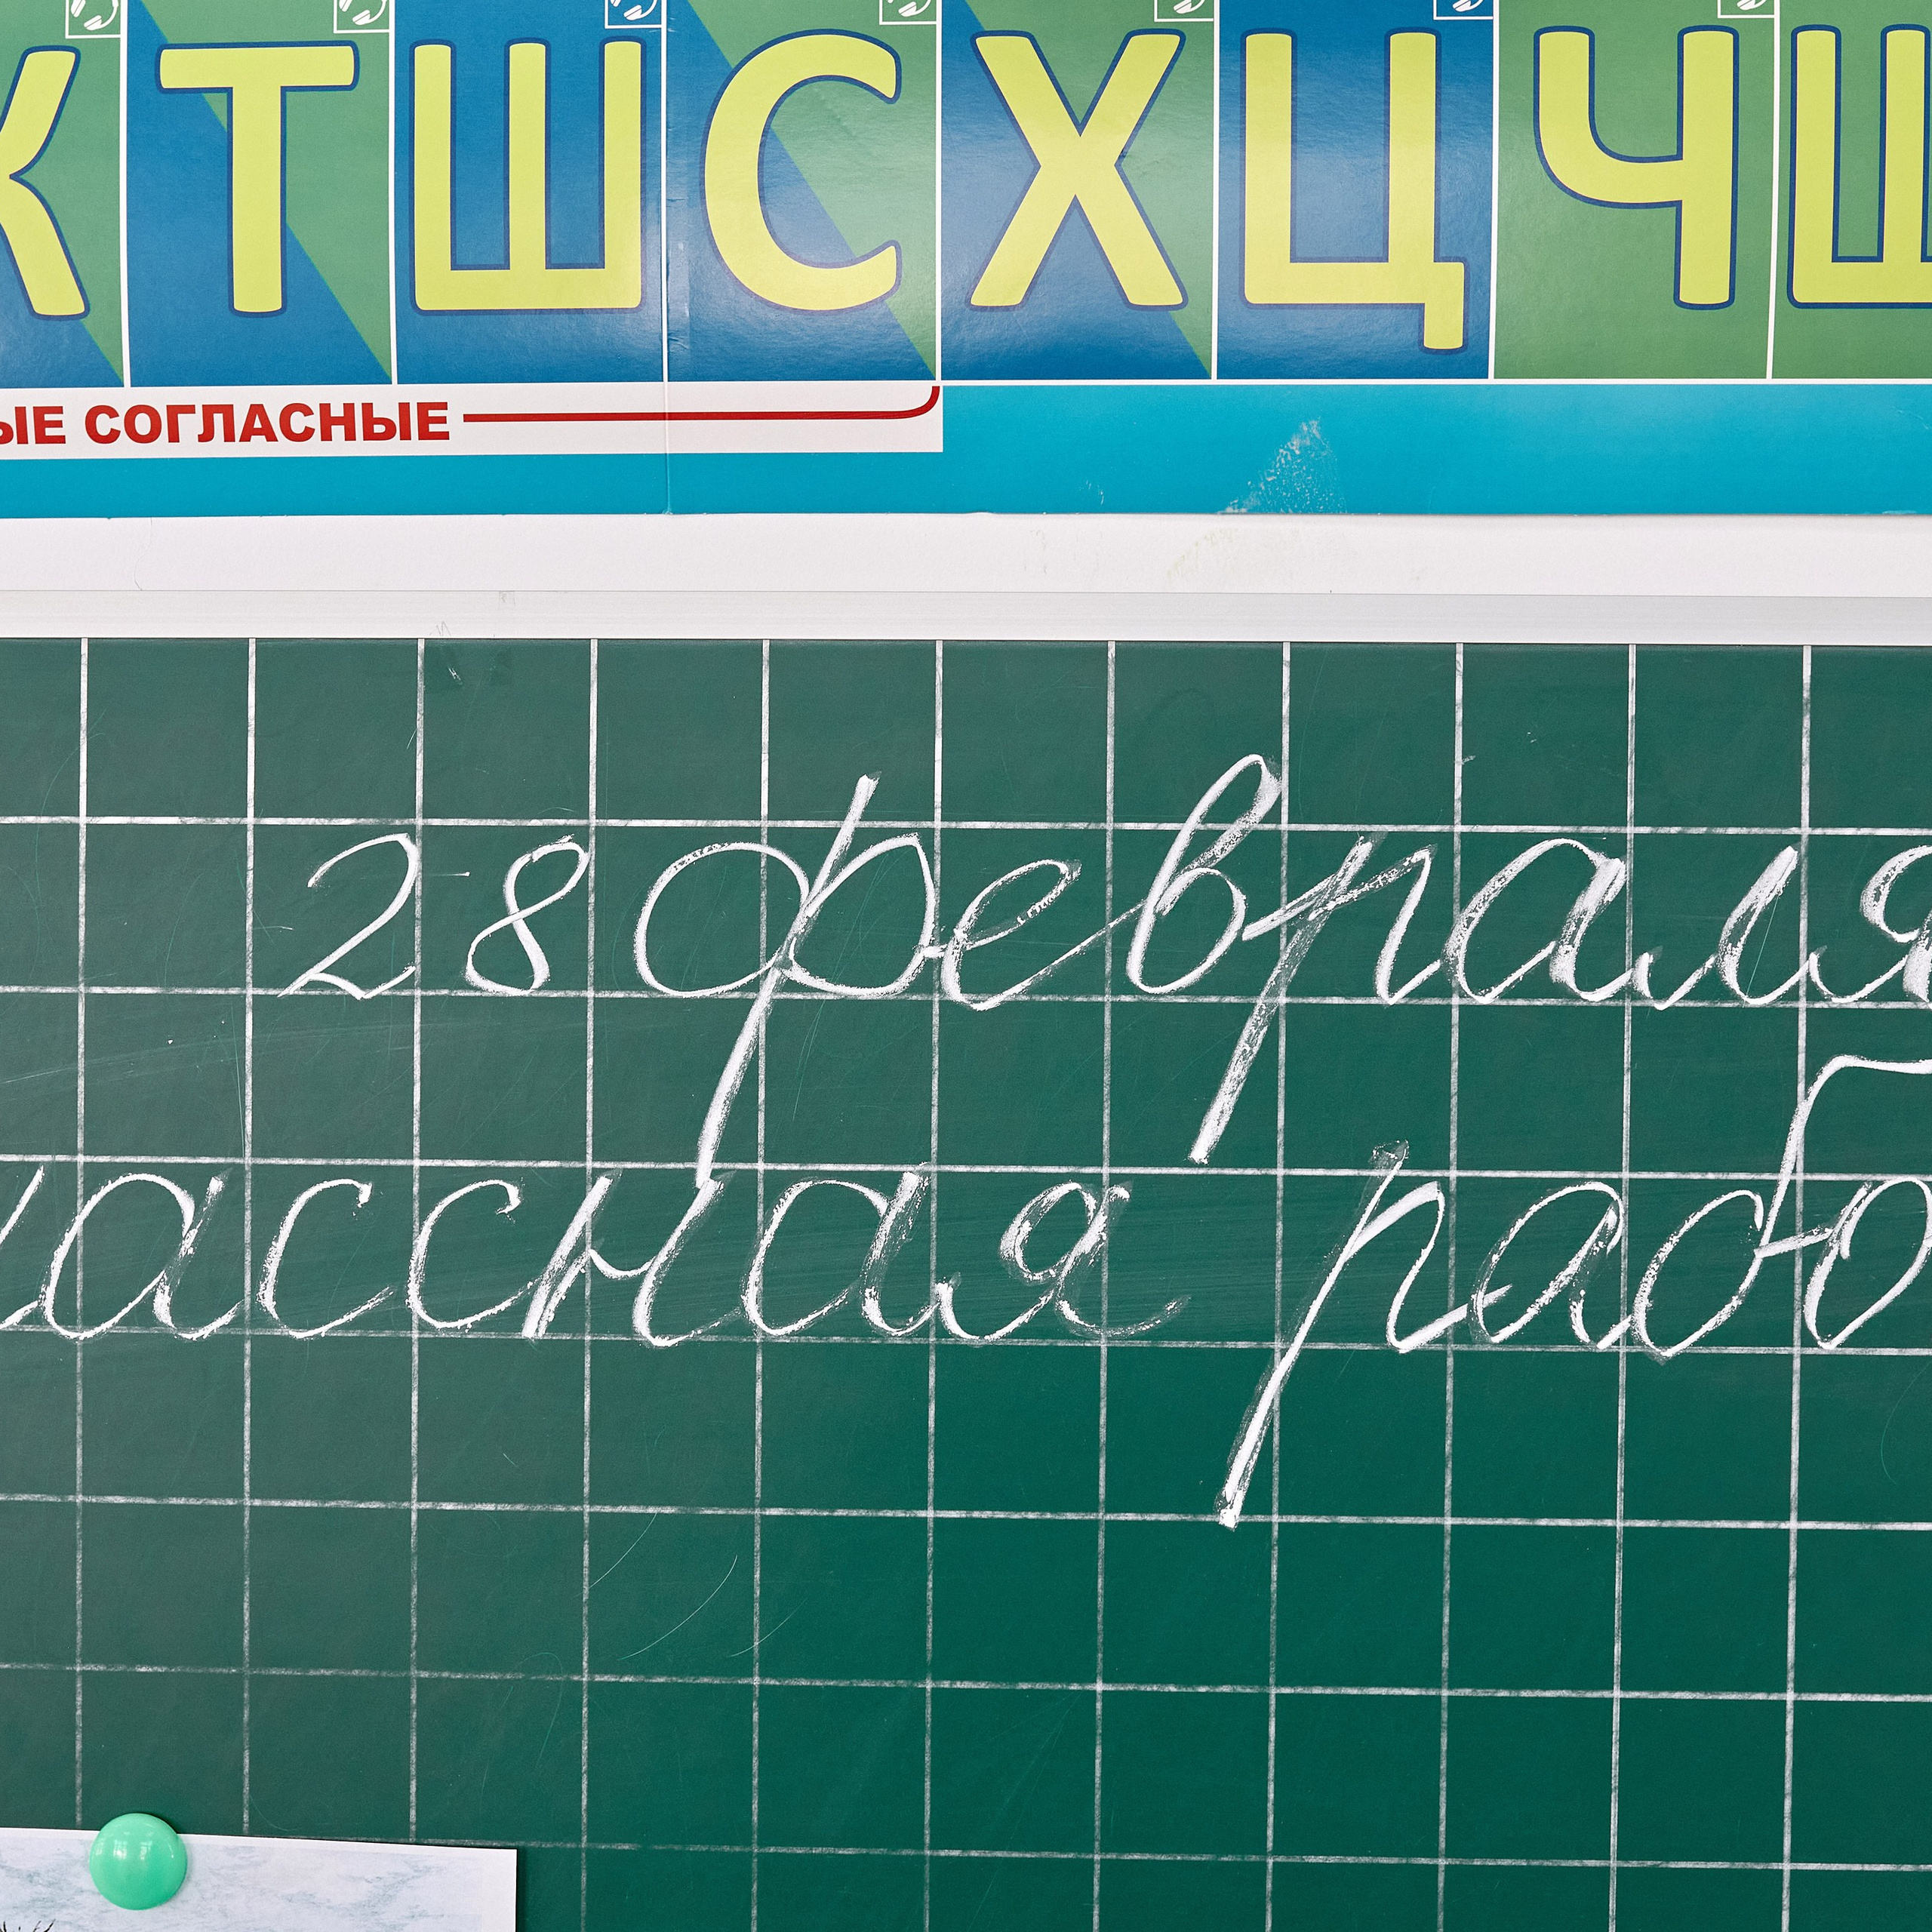 К Т Ш С Х Ц Ч Щ
ЫЕ СОГЛАСНЫЕ
28 февраля
лассная рабо